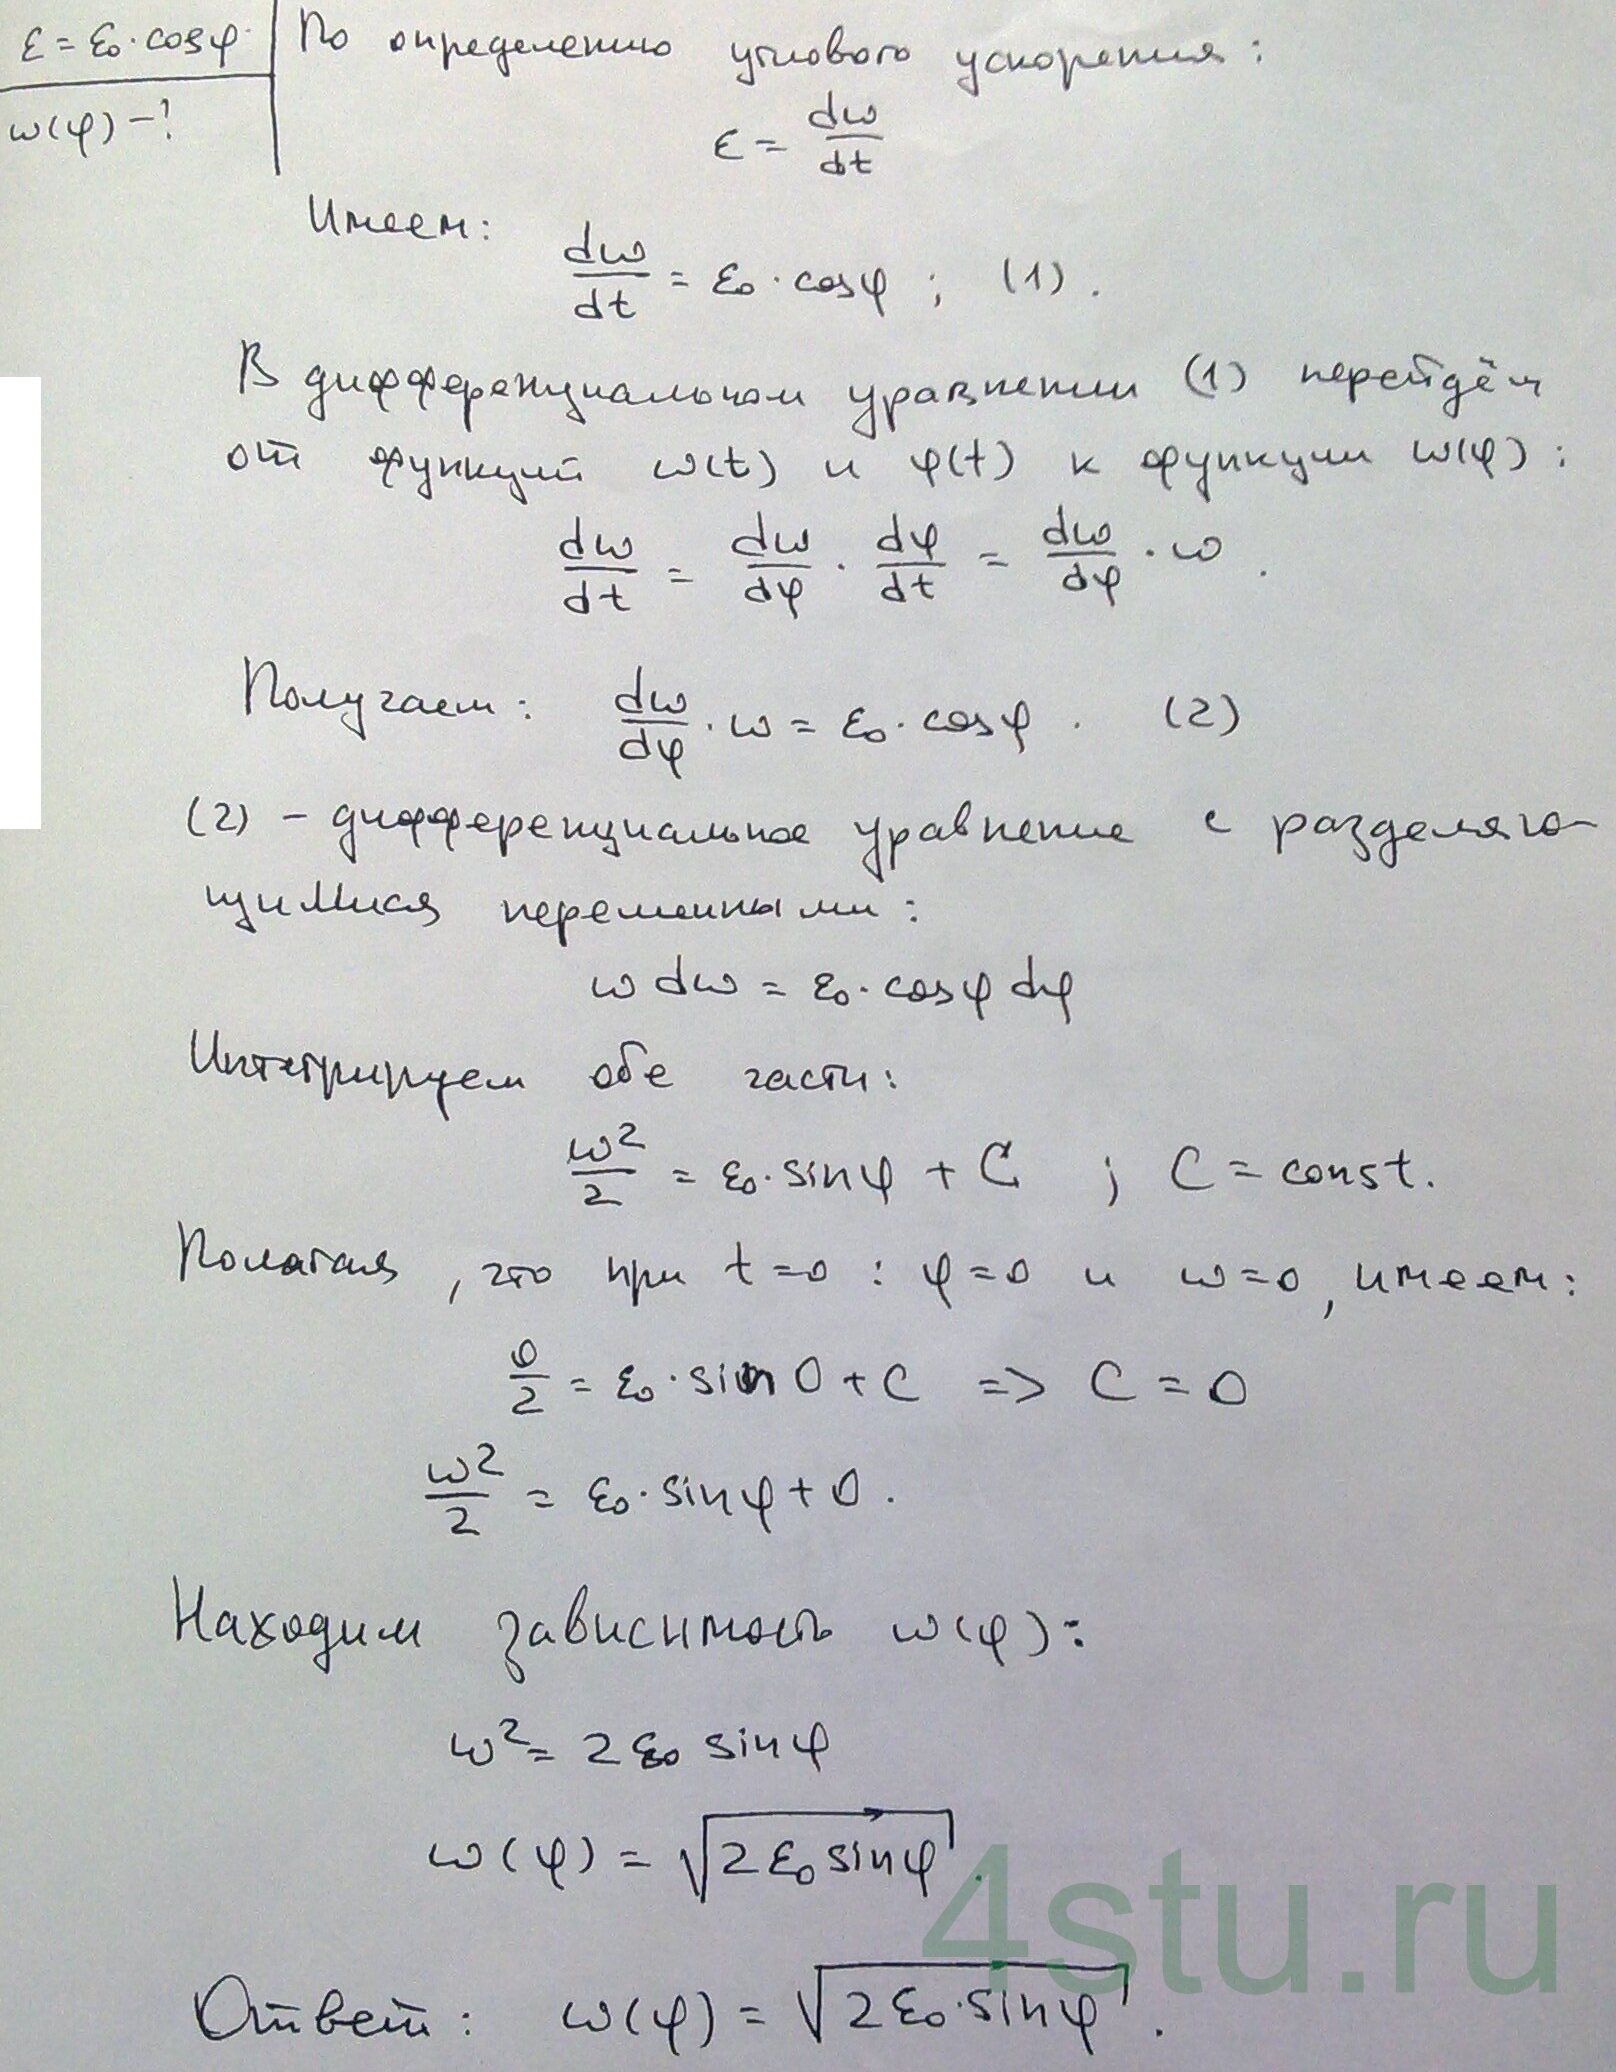 ε = ε₀·cosφ
ω(φ) – ?
По определению углового ускорения:
ε = dω/dt
Имеем:
dω/dt = ε₀·cosφ ; (1).
В дифференциальном уравнении (1) перейдём
от функций ω(t) и φ(t) к функции ω(φ):
dω/dt = dω/dφ · dφ/dt = dω/dφ · ω .
Получаем: dω/dφ · ω = ε₀·cosφ . (2)
(2) – дифференциальное уравнение с разделяю-
щимися переменными:
ω dω = ε₀·cosφ dφ
Интегрируем обе части:
ω²/2 = ε₀·sinφ + C ; C = const.
Полагая, что при t=0 : φ=0 и ω=0, имеем:
0/2 = ε₀·sin0 + C => C = 0
ω²/2 = ε₀·sinφ + 0.
Находим зависимость ω(φ):
ω² = 2ε₀ sinφ
ω(φ) = √(2ε₀ sinφ).
4stu.ru
Ответ: ω(φ) = √(2ε₀·sinφ) .